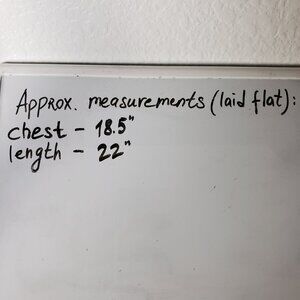 Approx. measurements (laid flat):
chest - 18.5"
length - 22"